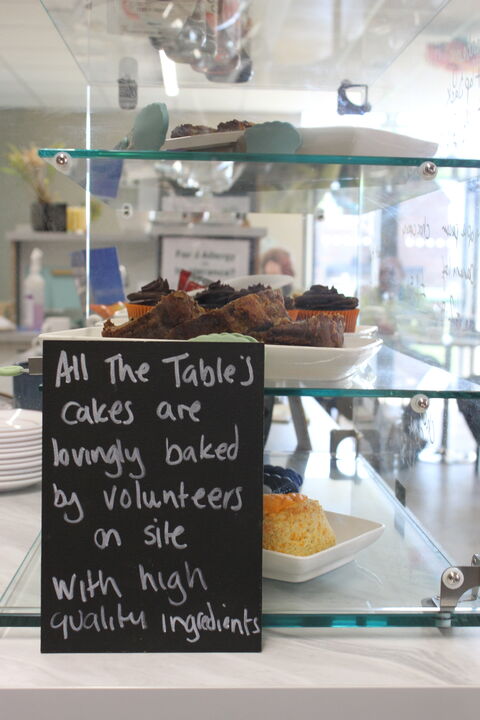 All The Table's
cakes are
lovingly baked
by volunteers
on site
with high
quality ingredients
For Allergy